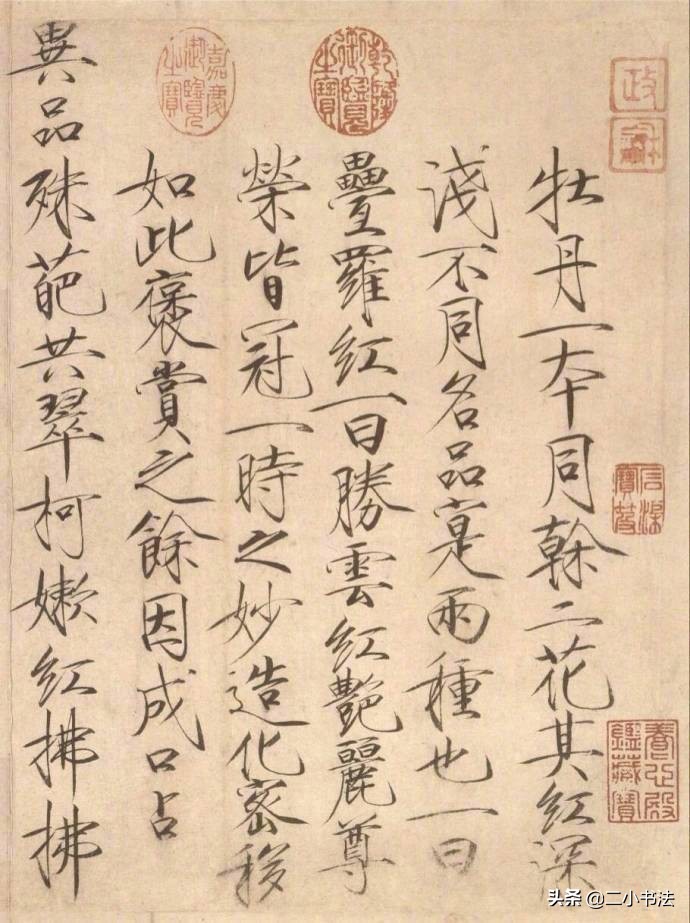 牡丹一本同榦二花其紅深
淺不同名品寔兩種也一曰
疊羅紅一曰勝雲紅艷麗尊
榮皆冠一時之妙造化密移
如此褒賞之餘因成口占
異品殊葩共翠柯嫩紅拂拂
乾隆御覽之寶
嘉慶御覽之寶
政龢
養心殿鑑藏寶
头条 @二小书法